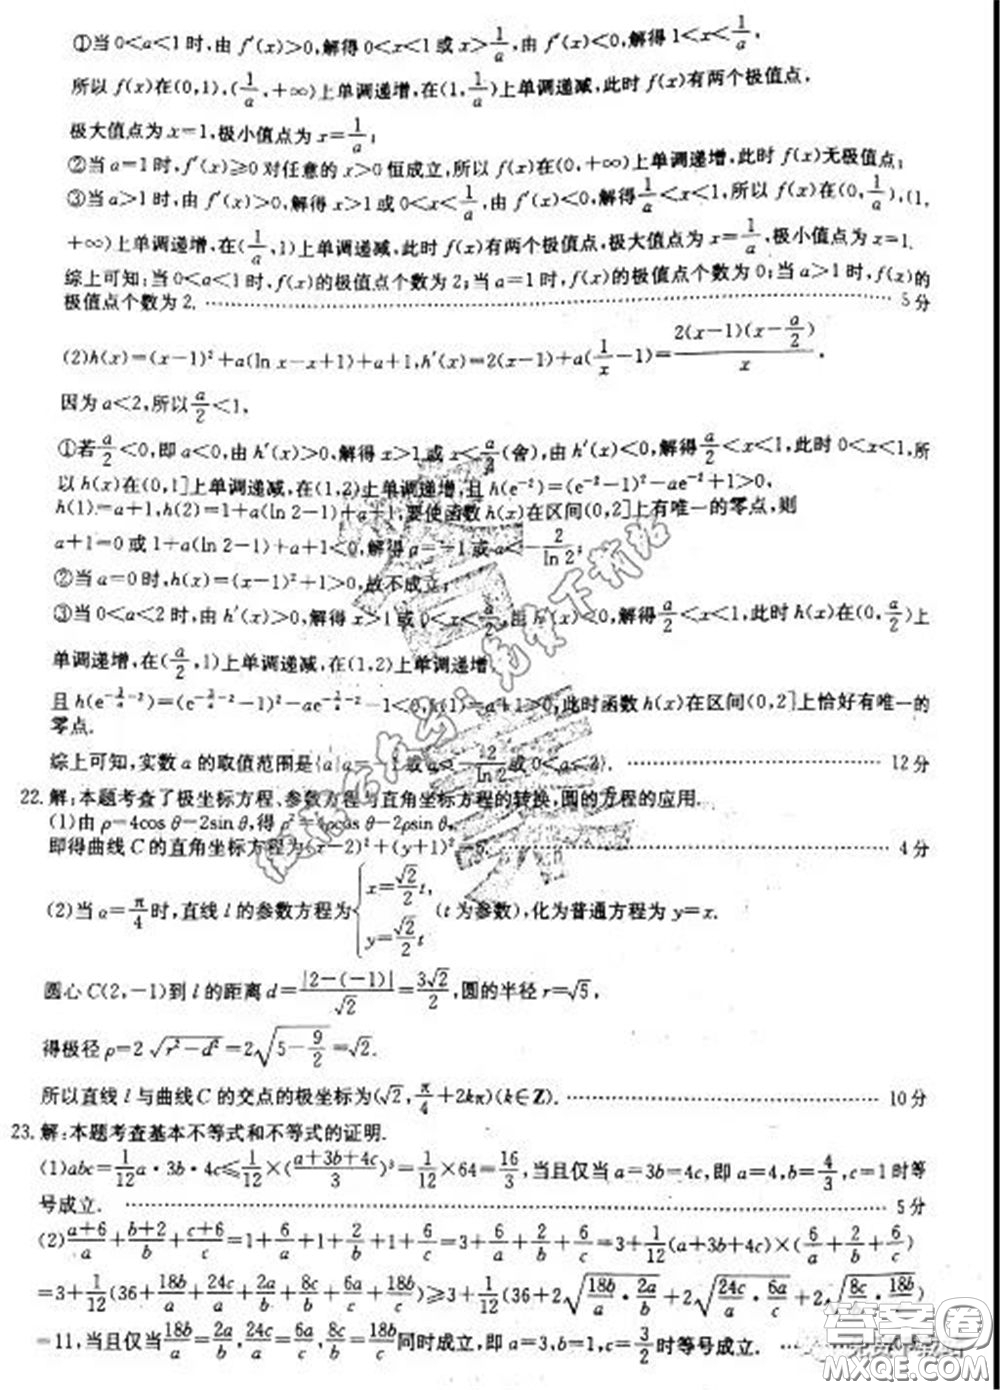 ①当 0<a<1 时,由 f′(x)>0,解得 0<x<1 或 x>1/a,由 f′(x)<0,解得 1<x<1/a,
所以 f(x)在(0,1),(1/a,+∞)上单调递增,在(1,1/a)上单调递减,此时 f(x)有两个极值点,
极大值点为 x=1,极小值点为 x=1/a;
②当 a=1 时,f′(x)≥0 对任意的 x>0 恒成立,所以 f(x)在(0,+∞)上单调递增,此时 f(x)无极值点;
③当 a>1 时,由 f′(x)>0,解得 x>1 或 0<x<1/a,由 f′(x)<0,解得 1/a<x<1,所以 f(x)在(0,1/a),(1,
+∞)上单调递增,在(1/a,1)上单调递减,此时 f(x)有两个极值点,极大值点为 x=1/a,极小值点为 x=1.
综上可知:当 0<a<1 时,f(x)的极值点个数为 2;当 a=1 时,f(x)的极值点个数为 0;当 a>1 时,f(x)的
极值点个数为 2. ………… 5 分
(2)h(x)=(x-1)²+a(ln x-x+1)+a+1,h′(x)=2(x-1)+a(1/x-1)=2(x-1)(x-a/2)/x,
因为 a<2,所以 a/2<1,
①若 a/2<0,即 a<0,由 h′(x)>0,解得 x>1 或 x<a/2(舍),由 h′(x)<0,解得 a/2<x<1,此时 0<x<1,所
以 h(x)在(0,1]上单调递减,在(1,2)上单调递增,且 h(e⁻²)=(e⁻²-1)²-ae⁻²+1>0,
h(1)=a+1,h(2)=1+a(ln 2-1)+a+1,要使函数 h(x)在区间(0,2]上有唯一的零点,则
a+1=0 或 1+a(ln 2-1)+a+1<0,解得 a=-1 或 a<-2/ln 2;
②当 a=0 时,h(x)=(x-1)²+1>0,故不成立;
③当 0<a<2 时,由 h′(x)>0,解得 x>1 或 0<x<a/2,由 h′(x)<0,解得 a/2<x<1,此时 h(x)在(0,a/2)上
单调递增,在(a/2,1)上单调递减,在(1,2)上单调递增,
零点.
综上可知,实数 a 的取值范围是{a|a=-1 或 a<-2/ln 2 或 0<a<2}. ………… 12 分
22.解:本题考查了极坐标方程、参数方程与直角坐标方程的转换,圆的方程的应用.
(1)由 ρ=4cos θ-2sin θ,得 ρ²=4ρcos θ-2ρsin θ,
即得曲线 C 的直角坐标方程为(x-2)²+(y+1)²=5. ………… 4 分
(2)当 α=π/4 时,直线 l 的参数方程为{x=√2/2 t, y=√2/2 t (t 为参数),化为普通方程为 y=x.
圆心 C(2,-1)到 l 的距离 d=|2-(-1)|/√2=3√2/2,圆的半径 r=√5,
得极径 ρ=2√(r²-d²)=2√(5-9/2)=√2.
所以直线 l 与曲线 C 的交点的极坐标为(√2,π/4+2kπ)(k∈Z). ………… 10 分
23.解:本题考查基本不等式和不等式的证明.
(1)abc=1/12 a·3b·4c≤1/12×((a+3b+4c)/3)³=1/12×64=16/3,当且仅当 a=3b=4c,即 a=4,b=4/3,c=1 时等
号成立. ………… 5 分
(2)(a+6)/a+(b+2)/b+(c+6)/c=1+6/a+1+2/b+1+6/c=3+6/a+2/b+6/c=3+1/12(a+3b+4c)×(6/a+2/b+6/c)
=3+1/12(36+18b/a+24c/a+2a/b+8c/b+6a/c+18b/c)≥3+1/12(36+2√(18b/a·2a/b)+2√(24c/a·6a/c)+2√(8c/b·18b/c))
=11,当且仅当 18b/a=2a/b,24c/a=6a/c,8c/b=18b/c 同时成立,即 a=3,b=1,c=3/2 时等号成立. …
答案卷
MXQE.COM